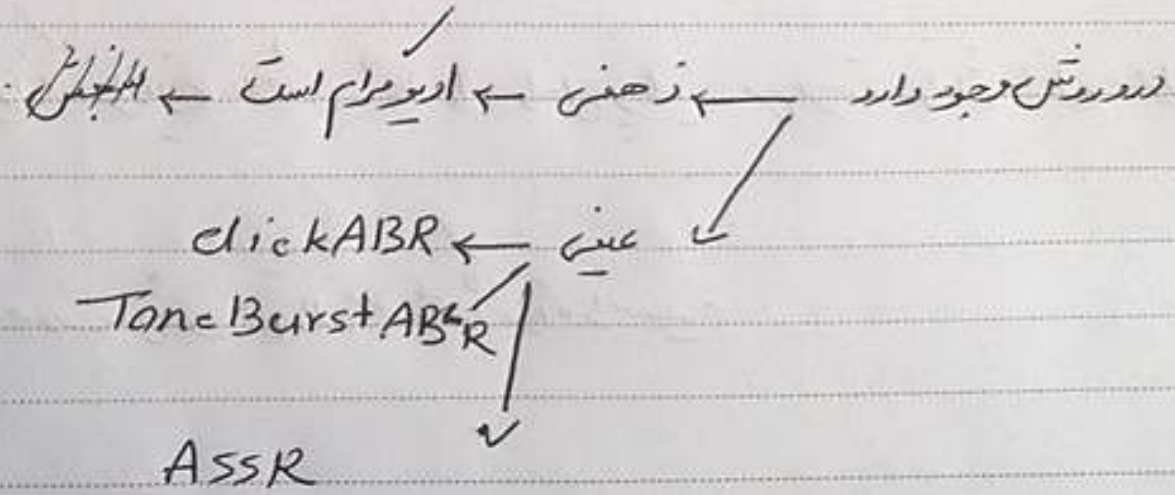 دو روش وجود دارد ← ذهنی ← ادیومرام است ←
عینی ← clickABR
Tone Burst ABR
ASSR